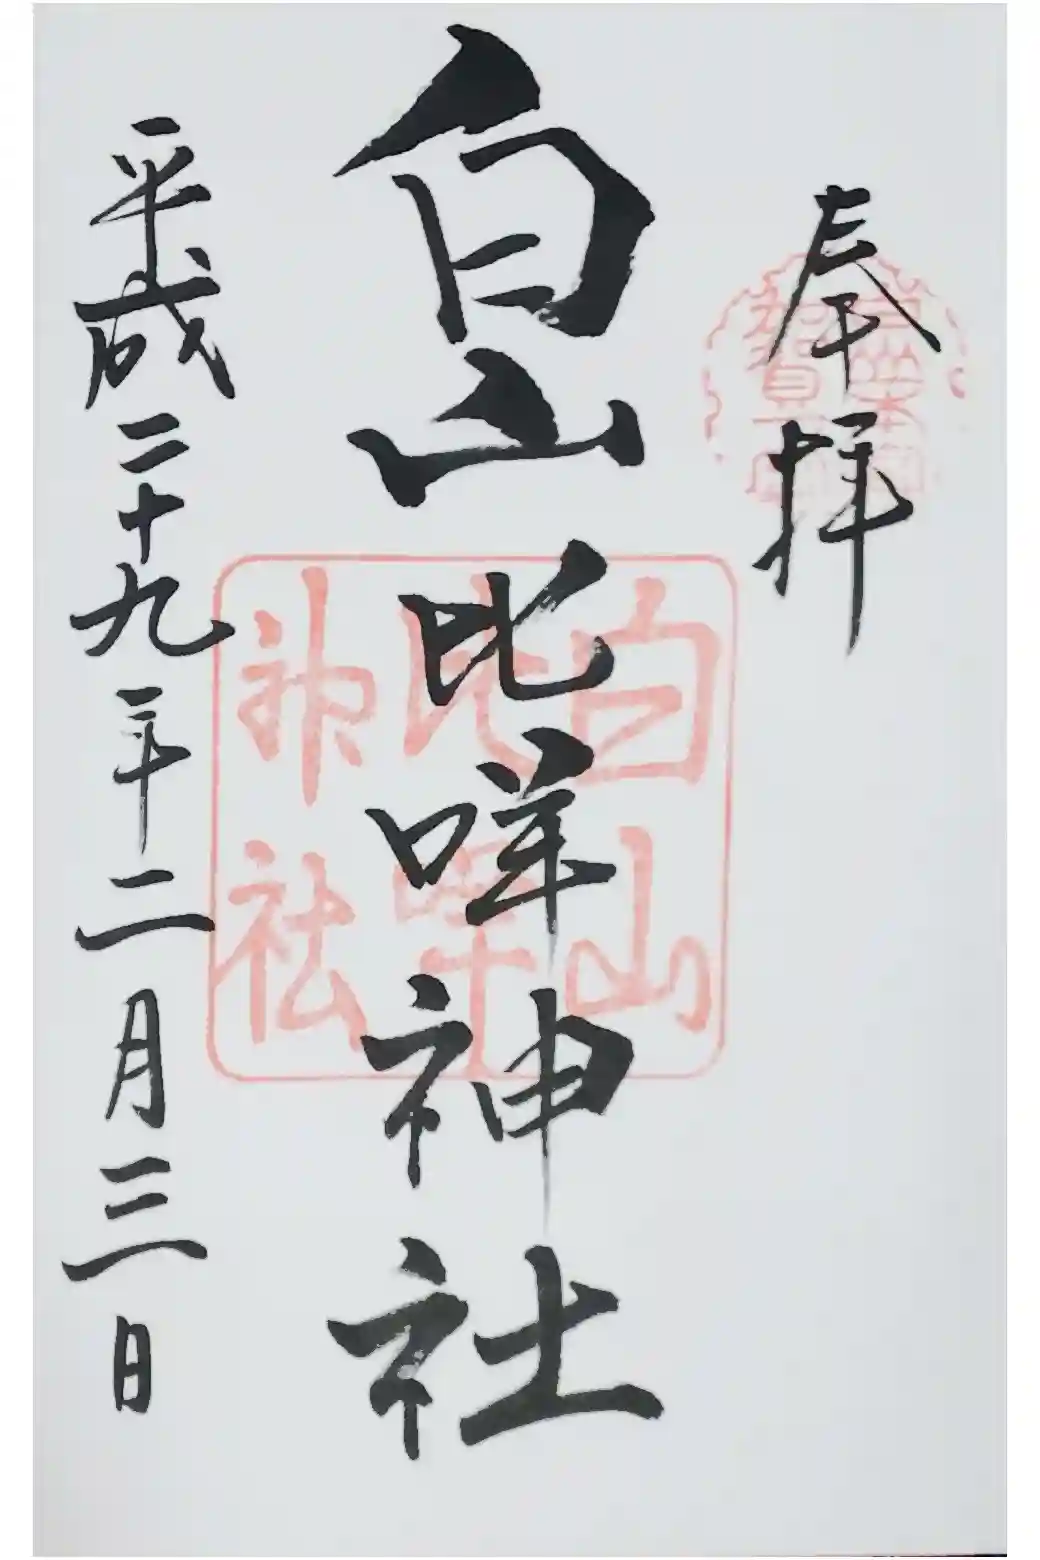 奉拝
白山比咩神社
白山比咩神社
平成二十九年二月三日